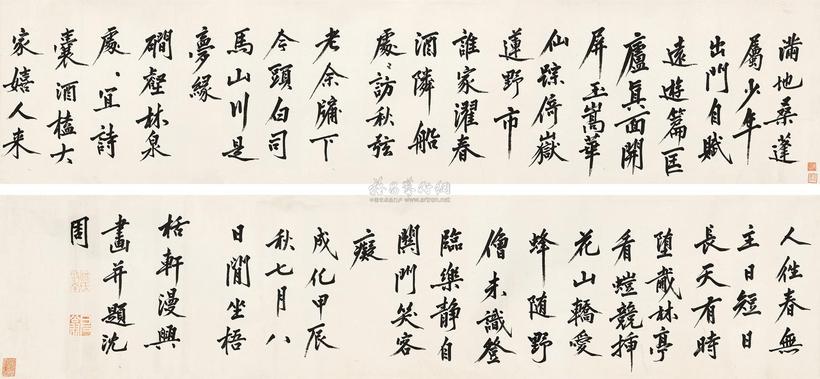 滿地桑蓬
屬少年
出門自賦
遠遊篇匡
廬真面開
屏玉嵩華
仙踪倚嶽
蓮野市
誰家濯春
酒隣船
處〻訪秋弦
老余牖下
今頭白司
馬山川是
夢緣
磵壑林泉
處〻宜詩
囊酒榼大
家嬉人来
人往春無
主日短日
長天有時
堕㦸林亭
看螘競挿
花山轎愛
蜂随野
僧未識登
臨樂静自
関門笑客
癡
成化甲辰
秋七月八
日閒坐梧
栝軒漫興
畫并題沈
周
雅昌藝術網
www.artron.net